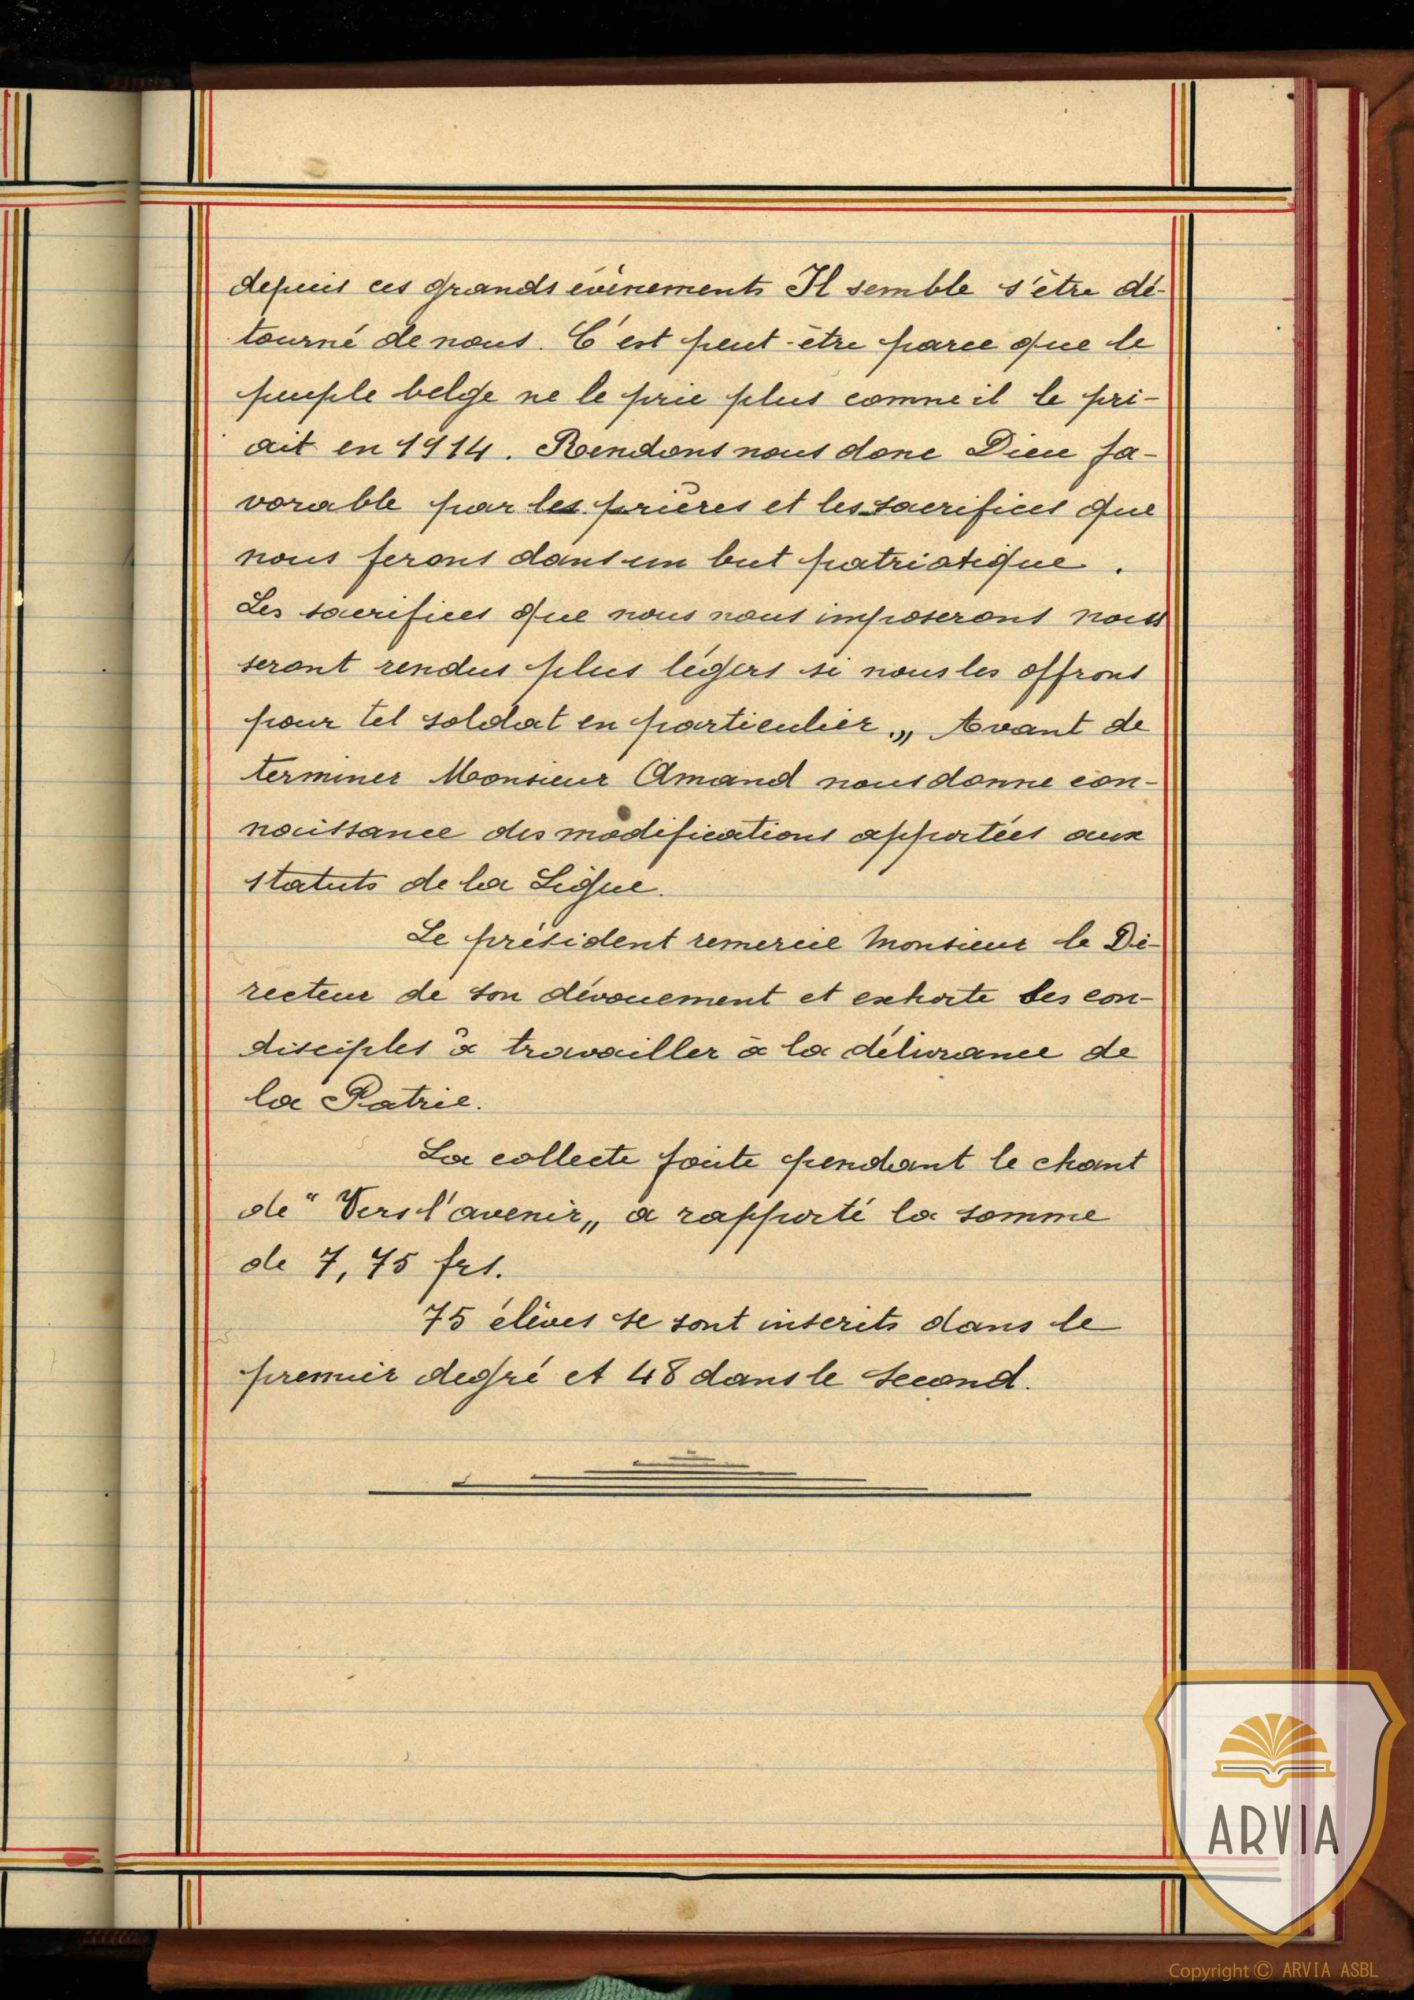 depuis ces grands évènements Il semble s'être dé-
tourné de nous. C'est peut-être parce que le
peuple belge ne le prie plus comme il le pri-
ait en 1914. Rendons nous donc Dieu fa-
vorable par les prières et les sacrifices que
nous ferons dans un but patriotique.
Les sacrifices que nous nous imposerons nous
seront rendus plus légers si nous les offrons
pour tel soldat en particulier.„ Avant de
terminer Monsieur Amand nous donne con-
naissance des modifications apportées aux
statuts de la Ligue.
Le président remercie Monsieur le Di-
recteur de son dévouement et exhorte ses con-
disciples à travailler à la délivrance de
la Patrie.
La collecte faite pendant le chant
de “Vers l'avenir„ a rapporté la somme
de 7,75 frs.
75 élèves se sont inscrits dans le
premier degré et 48 dans le second.
ARVIA
Copyright © ARVIA ASBL